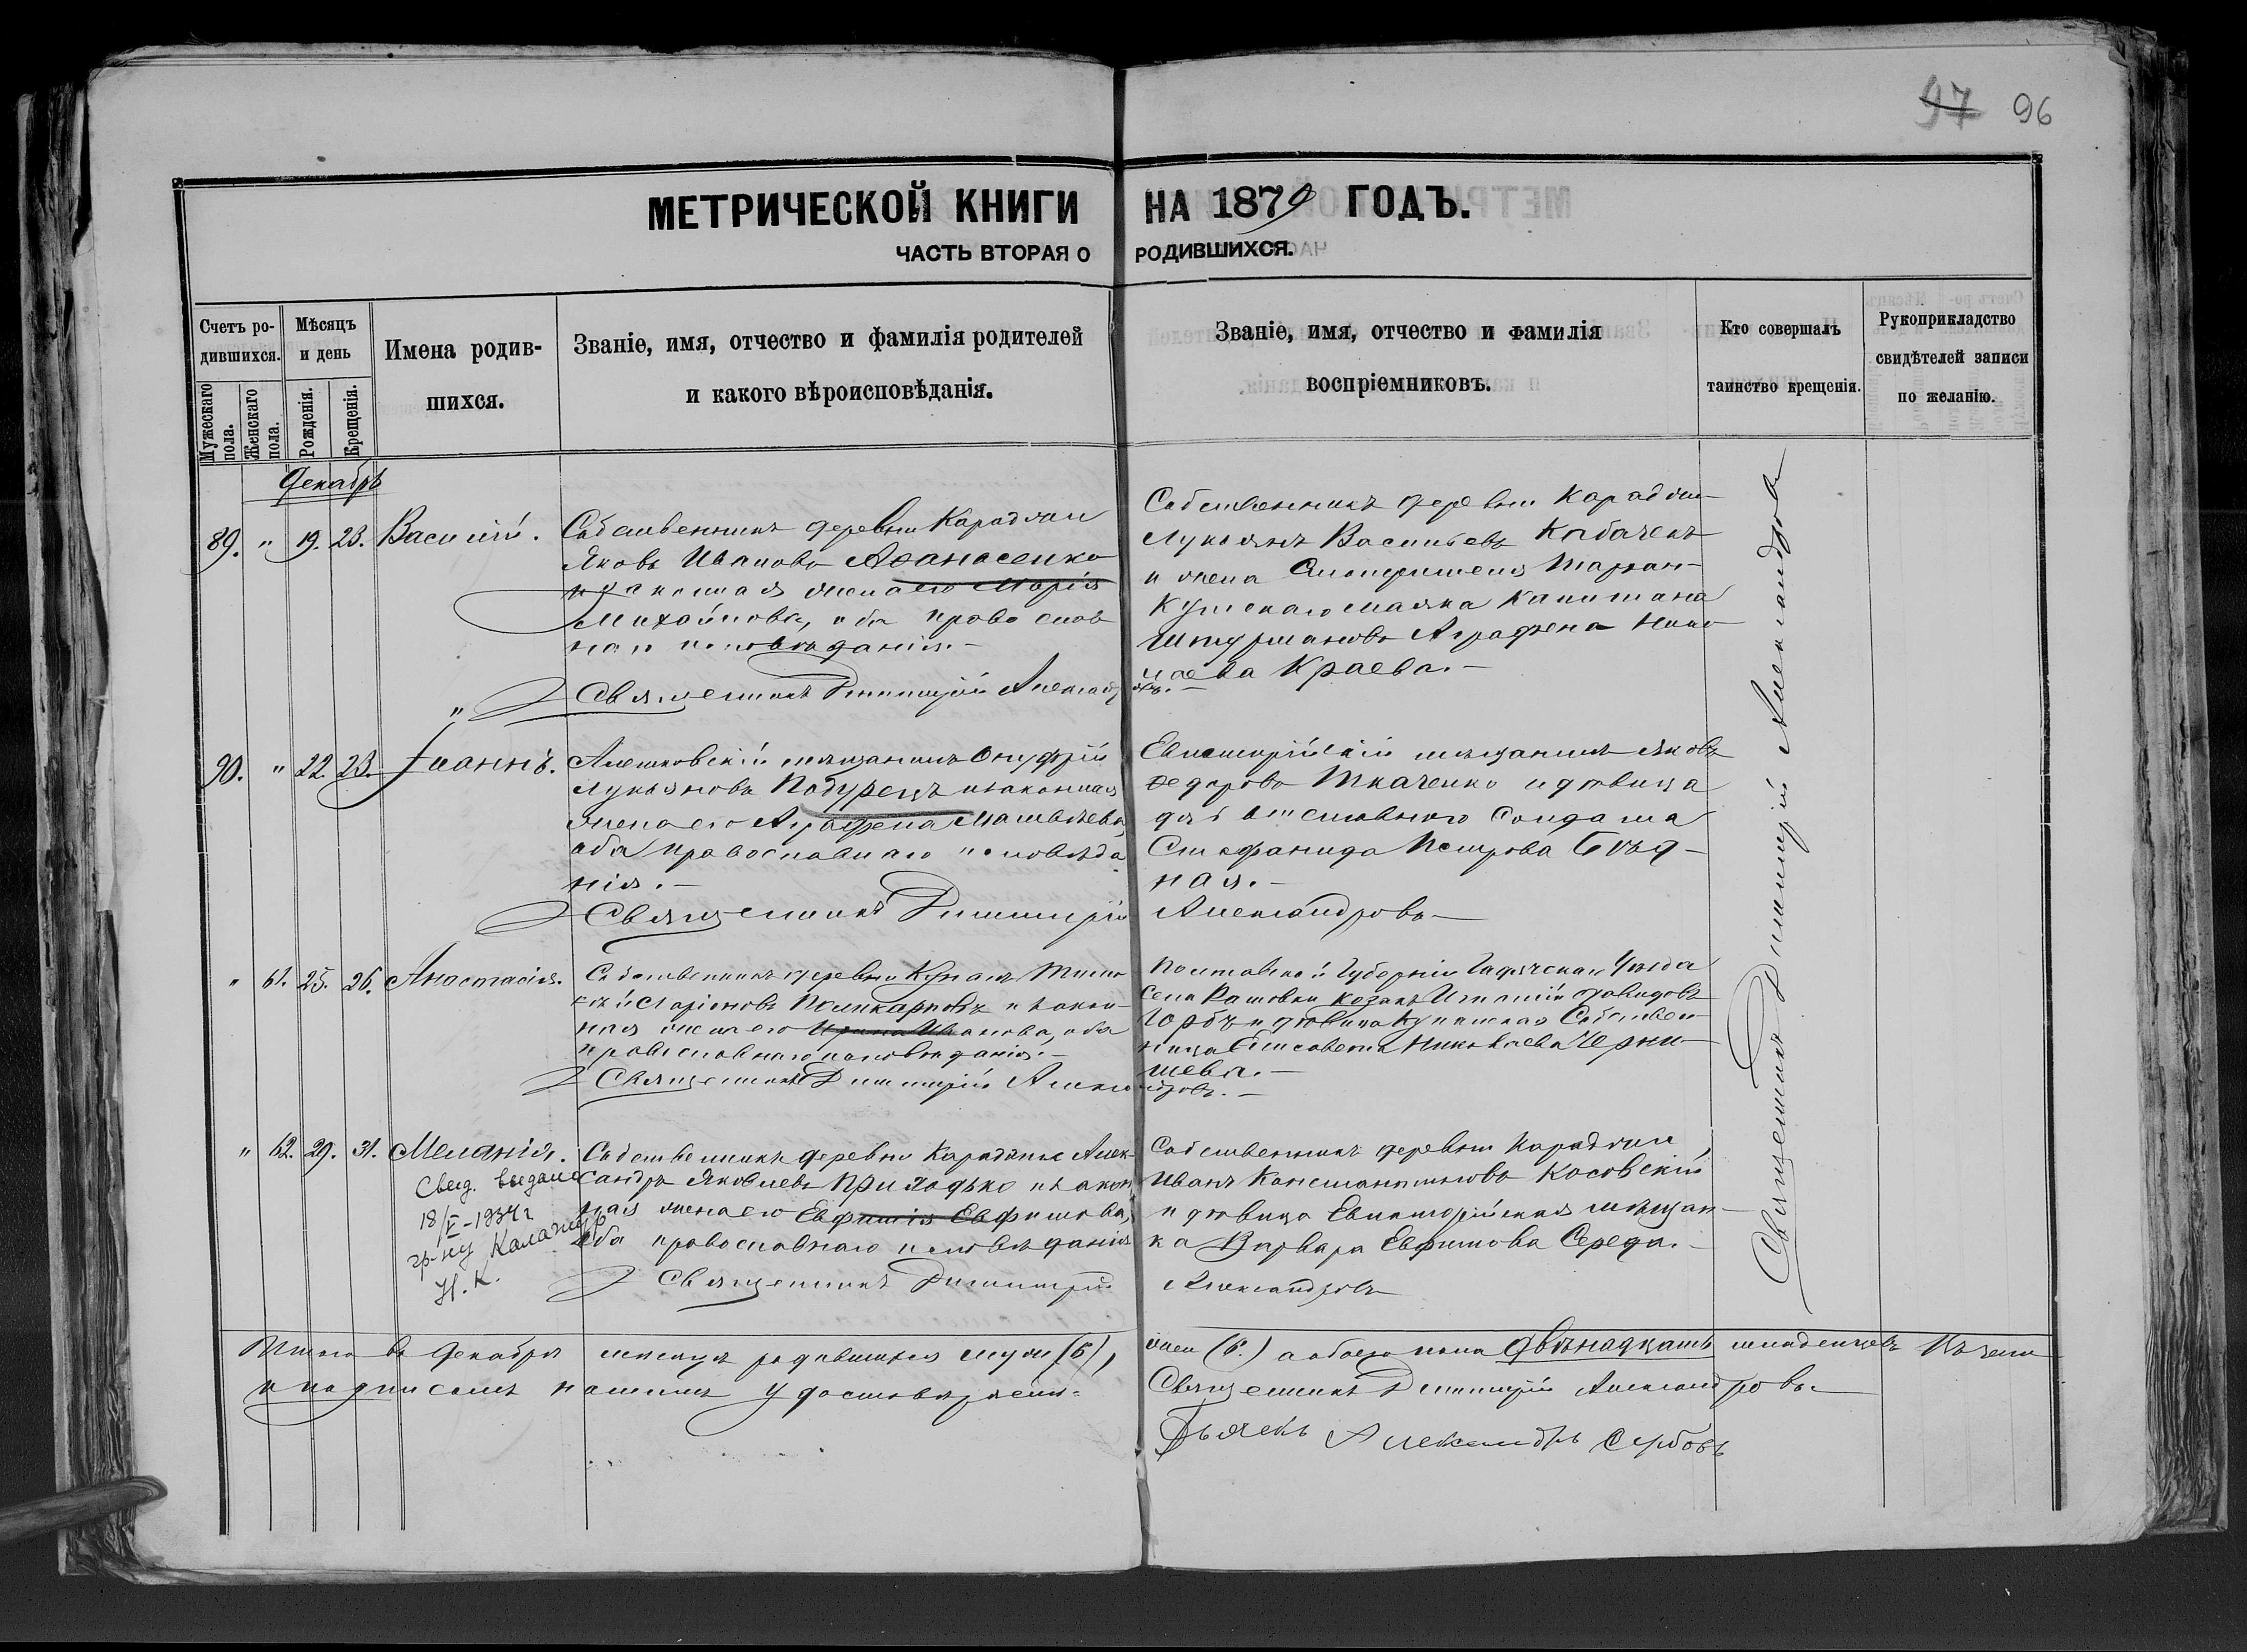 97 96
МЕТРИЧЕСКОЙ КНИГИ НА 1879 ГОДЪ.
ЧАСТЬ ВТОРАЯ О РОДИВШИХСЯ.
Счетъ ро-
дившихся.
Мужескаго пола.
Женскаго пола.
Мѣсяцъ
и день
Рожденія.
Крещенія.
Имена родив-
шихся.
Званіе, имя, отчество и фамилія родителей
и какого вѣроисповѣданія.
Званіе, имя, отчество и фамилія
воспріемниковъ.
Кто совершалъ
таинство крещенія.
Рукоприкладство
свидѣтелей записи
по желанію.
Декабрь
89. " 19. 23. Василій.
Собственникъ деревни Караджи
Яковъ Ивановъ Аѳанасенко
и законная жена его Марія
Михайлова, оба православ
наго исповѣданія.-
Священникъ Димитрій Александ
ровъ.-
Собственникъ деревни Караджи
Лукьянъ Васильевъ Кабачекъ
и жена Смотрителя Тархан-
кутскаго маяка Капитана
Штурмановъ Аграфена Нико
лаева Краева.-
"
90. " 22. 23. Іоаннъ.
Алешковскій мѣщанинъ Онуфрій
Лукьяновъ Подурецъ и законная
жена его Аграфена Матвѣева,
оба православнаго исповѣда
нія.-
Священникъ Димитрій Александровъ-
Евпаторійскій мѣщанинъ Яковъ
Ѳедоровъ Ткаченко и дѣвица
дочь отставного Солдата
Стефанида Петрова Бѣд-
ная.-
" 61. 25. 26. Анастасія.
Собственникъ деревни Кунанъ Тимо
ѳей Иларіоновъ Поликарповъ и закон-
ная жена его Ирина Иванова, оба
православнаго исповѣданія.-
Священникъ Димитрій Алекса
ндровъ.-
Полтавской Губерніи Гадячскаго Уѣзда
Села Рашовки козакъ Игнатій Давидовъ
Горбъ и дѣвица Кунанская Собствен-
ница Елисавета Николаева Черни-
шева.-
" 62. 29. 31. Меланія.
Свид. выдано
18/V-1934 г
гр-ну
Н. К.
Собственникъ деревни Караджи Алек-
сандръ Яковлевъ Приходько и закон
ная жена его Евфимія Евфимова,
оба православнаго исповѣданія
Священникъ Димитрій Александровъ
Собственникъ деревни Караджи
Иванъ Константиновъ Косовскій
и дѣвица Евпаторійская мѣщан-
ка Варвара Евфимова Середа.-
Священникъ Димитрій Александровъ
Итого въ Декабрѣ мѣсяцѣ родившихся муж (6), жен (6.) а обоего пола двѣнадцать младенцевъ Въ чемъ
и подписомъ нашимъ удостовѣряемъ:
Священникъ Димитрій Александровъ.-
Дьячекъ Александръ Сербовъ